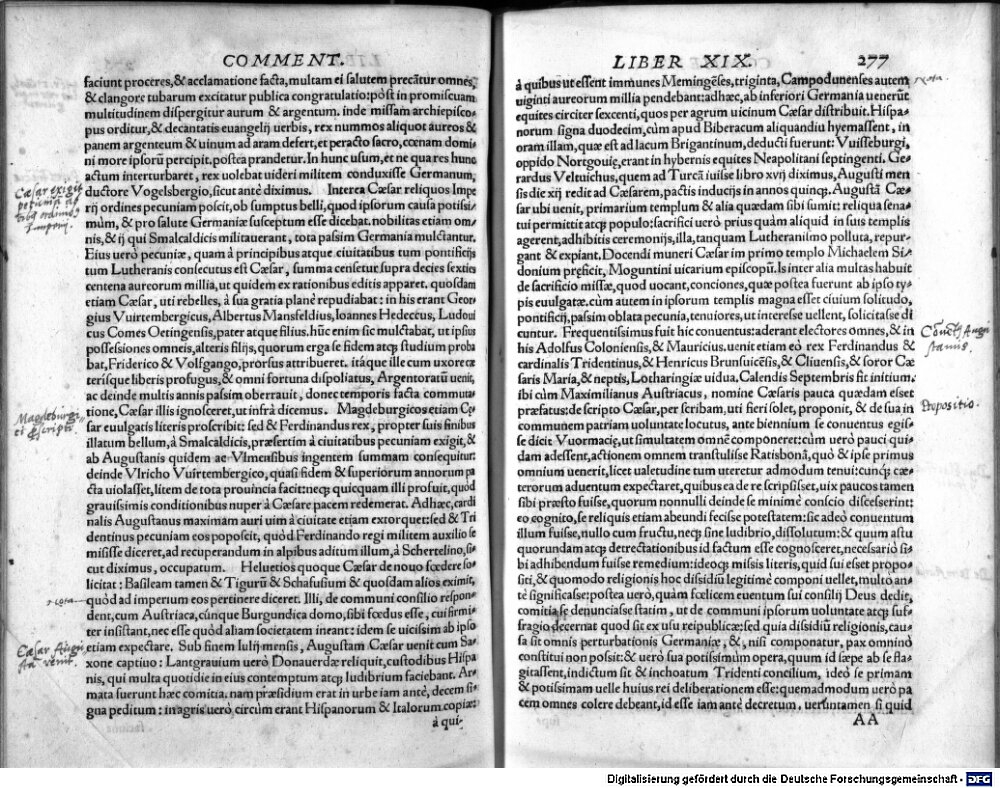 COMMENT.
faciunt proceres, & acclamatione facta, multam ei salutem precãtur omnes,
& clangore tubarum excitatur publica congratulatio: pòst in promiscuam
multitudinem dispergitur aurum & argentum. inde missam archiepisco-
pus orditur, & decantatis euangelij uerbis, rex nummos aliquot aureos &
panem argenteum & uinum ad aram defert, et peracto sacro, cœnam domi-
ni more ipsorũ percipit. postea prandetur. In hunc usum, et ne qua res hunc
actum interturbaret, rex uolebat uideri militem conduxisse Germanum,
ductore Vogelsbergio, sicut antè diximus. Interea Cæsar reliquos Impe
rij ordines pecuniam poscit, ob sumptus belli, quod ipsorum causa potissi-
mùm, & pro salute Germaniæ susceptum esse dicebat. nobilitas etiam om-
nis, & ij qui Smalcaldicis militauerant, tota passim Germania mulctantur.
Eius uerò pecuniæ, quam à principibus atque ciuitatibus tum pontificijs
tum Lutheranis consecutus est Cæsar, summa censetur supra decies sexties
centena aureorum millia, ut quidem ex rationibus editis apparet. quosdam
etiam Cæsar, uti rebelles, à sua gratia planè repudiabat: in his erant Geor
gius Vuirtembergicus, Albertus Mansfeldius, Ioannes Hedeccus, Ludoui
cus Comes Oetingensis, pater atque filius. hũc enim sic mulctabat, ut ipsius
possessiones omneis, alteris filijs, quorum erga se fidem atqꝫ studium proba
bat, Friderico & Volfgango, prorsus attribueret. itáque ille cum uxore cæ
terisque liberis profugus, & omni fortuna dispoliatus, Argentoratũ uenit,
ac deinde multis annis passim oberrauit, donec temporis facta commuta-
tione, Cæsar illis ignosceret, ut infrà dicemus. Magdeburgicos etiam Cę
sar euulgatis literis proscribit: sed & Ferdinandus rex, propter suis finibus
illatum bellum, à Smalcaldicis, præsertim à ciuitatibus pecuniam exigit, &
ab Augustanis quidem ac Vlmensibus ingentem summam consequitur.
deinde Vlricho Vuirtembergico, quasi fidem & superiorum annorum pa
cta uiolasset, litem de tota prouincia facit: neqꝫ quicquam illi profuit, quòd
grauissimis conditionibus nuper à Cæsare pacem redemerat. Adhæc, cardi
nalis Augustanus maximam auri uim à ciuitate etiam extorquet: sed & Tri
dentinus pecuniam eos poposcit, quòd Ferdinando regi militem auxilio se
misisse diceret, ad recuperandum in alpibus aditum illum, à Schertelino, si-
cut diximus, occupatum. Heluetios quoque Cæsar de nouo fœdere sol-
licitat: Basileam tamen & Tigurũ & Schafusium & quosdam alios eximit,
quòd ad imperium eos pertinere diceret. Illi, de communi consilio respon-
dent, cum Austriaca, cúnque Burgundica domo, sibi fœdus esse, cui firmi-
ter insistant, nec esse quòd aliam societatem ineant: idem se uicissim ab ipso
etiam expectare. Sub finem Iulij mensis, Augustam Cæsar uenit cum Sa-
xone captiuo: Lantgrauium uerò Donauerdæ reliquit, custodibus Hispa
nis, qui multa quotidie in eius contemptum atqꝫ ludibrium faciebant. Ar-
mata fuerunt hæc comitia. nam præsidium erat in urbe iam antè, decem si-
gna peditum: in agris uerò, circùm erant Hispanorum & Italorum copiæ:
à qui-
Cæsar exigit
Magdeburgi-
ei proscripti
nota
Cæsar Augu
stã venit.
LIBER XIX. 277
à quibus ut essent immunes Memingẽses, triginta, Campodunenses autem
uiginti aureorum millia pendebant: adhæc, ab inferiori Germania uenerũt
equites circiter sexcenti, quos per agrum uicinum Cæsar distribuit. Hispa-
norum signa duodecim, cùm apud Biberacum aliquandiu hyemassent, in
oram illam, quæ est ad lacum Brigantinum, deducti fuerunt: Vuisseburgi,
oppido Nortgouię, erant in hybernis equites Neapolitani septingenti. Ge-
rardus Veltuichus, quem ad Turcã iuisse libro xvij diximus, Augusti men
sis die xij redit ad Cæsarem, pactis inducijs in annos quinqꝫ. Augustã Cæ-
sar ubi uenit, primarium templum & alia quædam sibi sumit: reliqua sena-
tui permittit atqꝫ populo: sacrifici uerò prius quàm aliquid in suis templis
agerent, adhibitis ceremonijs, illa, tanquam Lutheranismo polluta, repur-
gant & expiant. Docendi muneri Cæsar im primo templo Michaelem Si-
donium pręficit, Moguntini uicarium episcopũ. Is inter alia multas habuit
de sacrificio missæ, quod uocant, conciones, quæ postea fuerunt ab ipso ty-
pis euulgatæ. cùm autem in ipsorum templis magna esset ciuium solitudo,
pontificij, passim oblata pecunia, tenuiores, ut interesse uellent, solicitasse di
cuntur. Frequentissimus fuit hic conuentus: aderant electores omnes, & in
his Adolfus Coloniensis, & Mauricius. uenit etiam eò rex Ferdinandus &
cardinalis Tridentinus, & Henricus Brunsuicẽsis, & Cliuensis, & soror Cæ
saris Maria, & neptis, Lotharingiæ uidua. Calendis Septembris fit initium.
ibi cùm Maximilianus Austriacus, nomine Cæsaris pauca quædam esset
præfatus: de scripto Cæsar, per scribam, uti fieri solet, proponit, & de sua in
communem patriam uoluntate locutus, ante biennium se conuentus egis-
se dicit Vuormacię, ut simultatem omnẽ componeret: cùm uerò pauci qui-
dam adessent, actionem omnem transtulisse Ratisbonã, quò & ipse primus
omnium uenerit, licet ualetudine tum uteretur admodum tenui: cunqꝫ cæ-
terorum aduentum expectaret, quibus ea de re scripsisset, uix paucos tamen
sibi præsto fuisse, quorum nonnulli deinde se minimè conscio discesserint:
eo cognito, se reliquis etiam abeundi fecisse potestatem: sic adeò conuentum
illum fuisse, nullo cum fructu, necqꝫ sine ludibrio, dissolutum: & quum astu
quorundam atqꝫ detrectationibus id factum esse cognosceret, necessariò si-
bi adhibendum fuisse remedium: ideoqꝫ missis literis, quid sui esset propo
siti, & quomodo religionis hoc dissidiũ legitimè componi uellet, multo an-
tè significasse: postea uerò, quàm fœlicem euentum sui consilij Deus dedit,
comitia se denunciasse statim, ut de communi ipsorum uoluntate atqꝫ suf-
fragio decernat quod sit ex usu reipublicæ: sed quia dissidiũ religionis, cau-
sa sit omnis perturbationis Germaniæ, &, nisi componatur, pax omnino
constitui non possit: & uerò sua potissimùm opera, quum id sæpe ab se fla-
gitassent, indictum sit & inchoatum Tridenti concilium, ideò se primàm
& potissimam uelle huius rei deliberationem esse: quemadmodum uerò pa
cem omnes colere debeant, id esse iam antè decretum, ueruntamen si quid
AA
Nota.
Cõuẽtꝰ Augu
stanus.
Propositio.
Digitalisierung gefördert durch die Deutsche Forschungsgemeinschaft - DFG